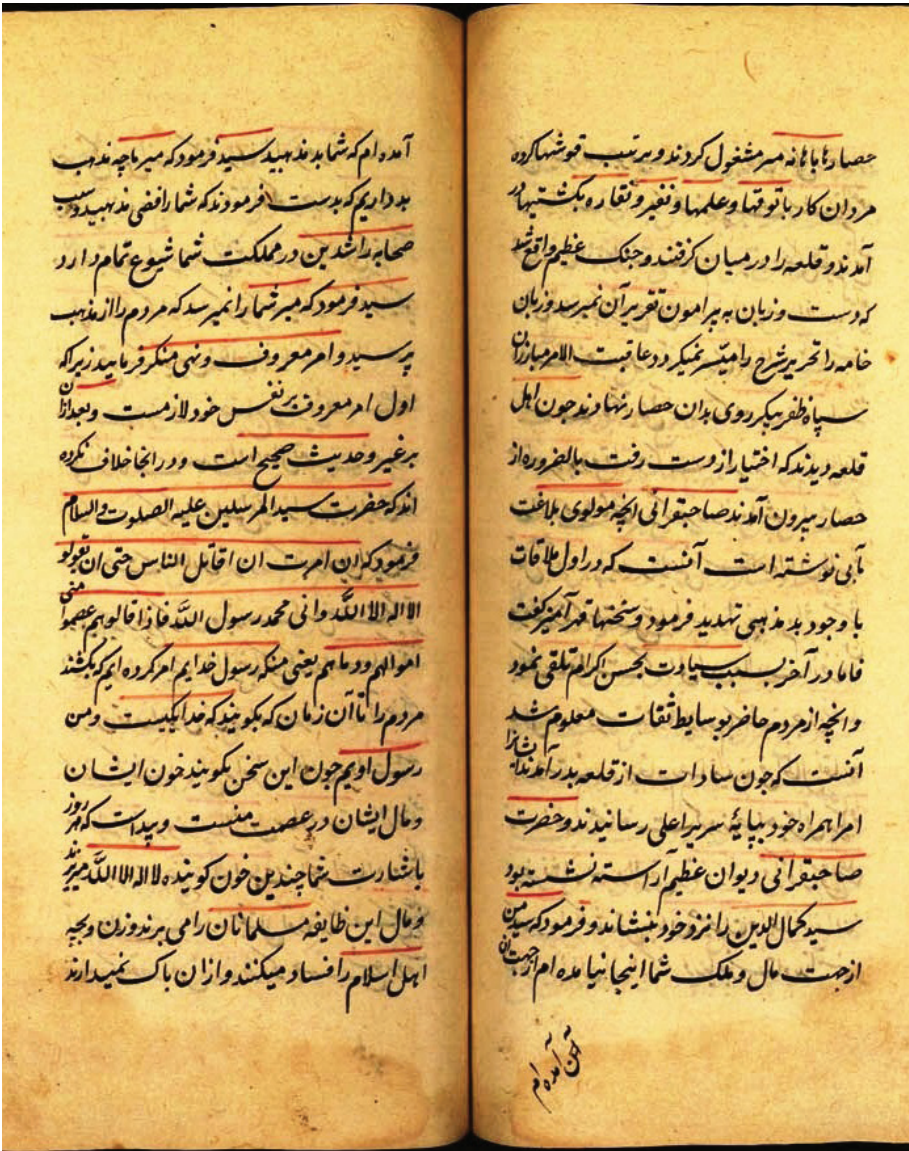 حصارها باهانه مسر مشغول کردند و برتیب قوشنها کرده
مردان کار با توقها و علمها و نفیر و نقاره بکشتیها در
آمدند و قلعه را در میان گرفتند و جنک عظیم واقع شد
که دست و زبان به پیرامون تقریر آن نمیرسد و زبان
خامه را تحریر شرح را میسّر نمیکردد عاقبت الامر مبارزان
سپاه ظفر پیکر روی بدان حصار نهادند جون اهل
قلعه دیدند که اختیار از دست رفت بالضروره از
حصار بیرون آمدند صاحبقرانی انچه مولوی بلاغت
مآبی نوشته است آنست که در اول ملاقات
با وجود بد مذهبی تهدید فرمود و سخنها قهرآمیز کفت
فاما در آخر بسبب سیادت بحسن اکرام تلقی نمود
و انچه از مردم حاضر بوسایط ثقات معلوم شد
آنست که جون سادات از قلعه بدر آمدند ایشانرا
امرا همراه خود بپایهٔ سریر اعلی رسانیدند و حضرت
صاحبقرانی دیوان عظیم آراسته نشسته بود
سید کمال الدین را نزد خود بنشاند و فرمود که سید من
از جهت مال و ملک شما اینجا نیامده ام از جهت آن
آن آمده ام
آمده ام که شما بد مذهبید سید فرمود که میر ما چه مذهب
بد داریم که بدست فرمودند که شما رافضی مذهبید و سب
صحابه راشدین در مملکت شما شیوع تمام دارد
سید فرمود که میر شما را نمیرسد که مردم را از مذهب
پرسید و امر معروف و نهی منکر فرمایید زیرا که
اول امر معروف بر نفس خود لازمست و بعد ازان
بر غیر و حدیث صحیح است و در انجا خلاف نکرده
اند که حضرت سید المرسلین علیه الصلوت والسلام
فرمود که ان امرت ان اقاتل الناس حتی ان یقولو
الا اله الا اللّه و انی محمد رسول اللّه فاذا قالوهم عصموا منی
اموالهم و دماهم یعنی منکه رسول خدایم امر کرده ایم که بکشند
مردم را تا آن زمان که بکویند که خدا یکیست و من
رسول اویم جون این سخن بکویند خون ایشان
و مال ایشان در عصمت منست و پیداست که هر روز
باشارت شما چندین خون کوینده لا اله الا اللّه میریزند
و مال این طایفه مسلمانان را می برند و زن و بچه
اهل اسلام را فساد میکنند و ازان باک نمیدارند